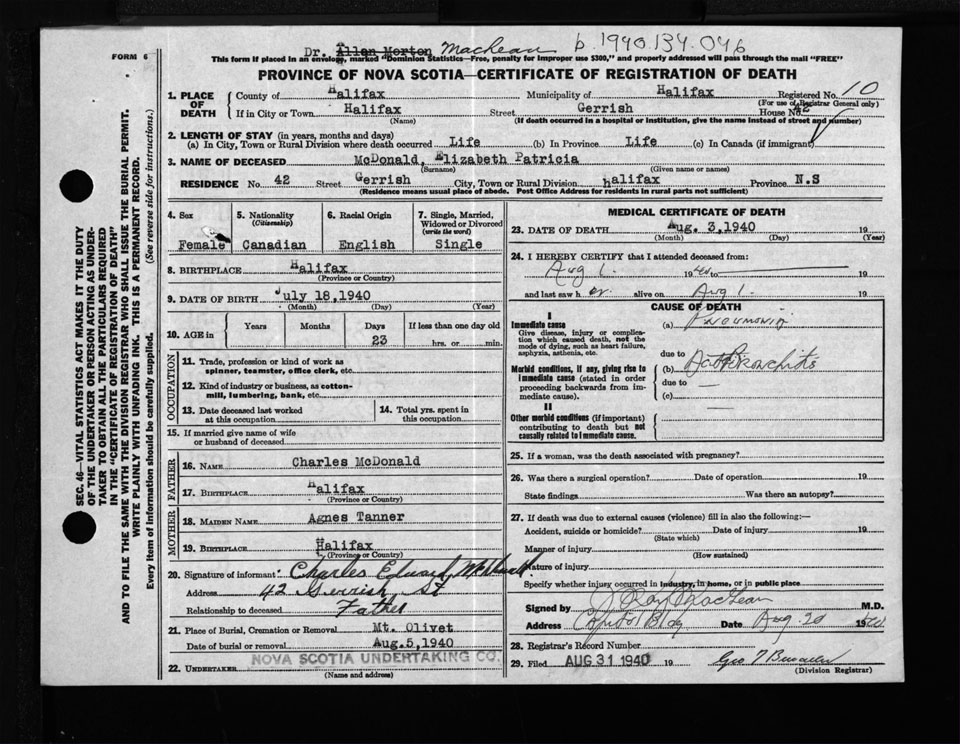 Dr. Allan Morton MacLean b. 1940.134.046
FORM 6
This form if placed in an envelope, marked "Dominion Statistics—Free, penalty for improper use $300," and properly addressed will pass through the mail "FREE"
PROVINCE OF NOVA SCOTIA—CERTIFICATE OF REGISTRATION OF DEATH
1. PLACE OF DEATH County of Halifax Municipality of Halifax Registered No. 10
(For use of Registrar General only)
If in City or Town Halifax Street Gerrish House No. 42
(Name) (If death occurred in a hospital or institution, give the name instead of street and number)
2. LENGTH OF STAY (in years, months and days)
(a) In City, Town or Rural Division where death occurred Life (b) In Province Life (c) In Canada (if immigrant)
3. NAME OF DECEASED McDonald, Elizabeth Patricia
(Surname) (Given name or names)
RESIDENCE No. 42 Street Gerrish City, Town or Rural Division Halifax Province N.S
(Residence means usual place of abode. Post Office Address for residents in rural parts not sufficient)
4. Sex
Female
5. Nationality
(Citizenship)
Canadian
6. Racial Origin
English
7. Single, Married, Widowed or Divorced
(write the word)
Single
8. BIRTHPLACE Halifax
(Province or Country)
9. DATE OF BIRTH July 18, 1940
(Month) (Day) (Year)
10. AGE in
Years Months Days If less than one day old
23 hrs. or min.
OCCUPATION
11. Trade, profession or kind of work as
spinner, teamster, office clerk, etc.
12. Kind of industry or business, as cotton-
mill, lumbering, bank, etc.
13. Date deceased last worked
at this occupation
14. Total yrs. spent in
this occupation
15. If married give name of wife
or husband of deceased
FATHER
16. NAME Charles McDonald
17. BIRTHPLACE Halifax
(Province or Country)
MOTHER
18. MAIDEN NAME Agnes Tanner
19. BIRTHPLACE Halifax
(Province or Country)
20. Signature of informant Charles Edward
Address 42 Gerrish St
Relationship to deceased Father
21. Place of Burial, Cremation or Removal Mt. Olivet
Date of burial or removal Aug. 5, 1940
22. UNDERTAKER NOVA SCOTIA UNDERTAKING CO.
(Name and address)
MEDICAL CERTIFICATE OF DEATH
23. DATE OF DEATH Aug. 3, 1940 19
(Month) (Day) (Year)
24. I HEREBY CERTIFY that I attended deceased from:
Aug 1. 19 40 to 19
and last saw h er alive on Aug 1. 19
CAUSE OF DEATH
I
Immediate cause
Give disease, injury or complica-
tion which caused death, not the
mode of dying, such as heart failure,
asphyxia, asthenia, etc.
(a) Pneumonia
due to
Morbid conditions, if any, giving rise to
immediate cause (stated in order
proceeding backwards from im-
mediate cause).
(b) Bronchitis
due to
(c)
II
Other morbid conditions (if important)
contributing to death but not
causally related to immediate cause.
25. If a woman, was the death associated with pregnancy?
26. Was there a surgical operation? Date of operation 19
State findings Was there an autopsy?
27. If death was due to external causes (violence) fill in also the following:—
Accident, suicide or homicide? Date of injury 19
(State which)
Manner of injury
(How sustained)
Nature of injury
Specify whether injury occurred in industry, in home, or in public place
Signed by J Ray MacLean M.D.
Address Capitol Bldg Date Aug. 20 1940
28. Registrar's Record Number
29. Filed AUG 31 1940 19 Geo
(Division Registrar)
SEC. 46—VITAL STATISTICS ACT MAKES IT THE DUTY
OF THE UNDERTAKER OR PERSON ACTING AS UNDER-
TAKER TO OBTAIN ALL THE PARTICULARS REQUIRED
IN THE "CERTIFICATE OF REGISTRATION OF DEATH"
AND TO FILE THE SAME WITH THE DIVISION REGISTRAR WHO SHALL ISSUE THE BURIAL PERMIT.
WRITE PLAINLY WITH UNFADING INK. THIS IS A PERMANENT RECORD.
Every item of information should be carefully supplied. (See reverse side for instructions.)